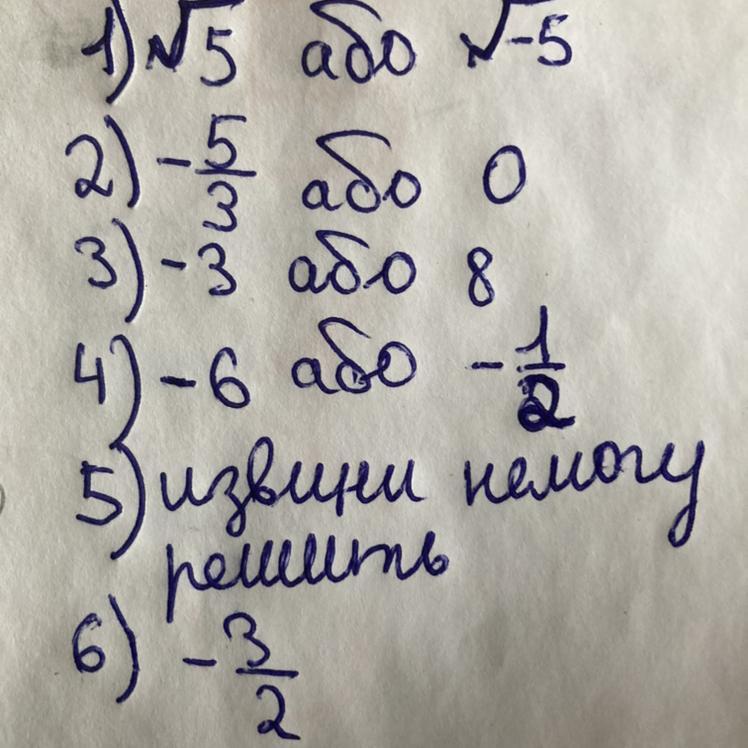 1) √5 або √-5
2) -5/3 або 0
3) -3 або 8
4) -6 або -1/2
5) извини немогу
решить
6) -3/2